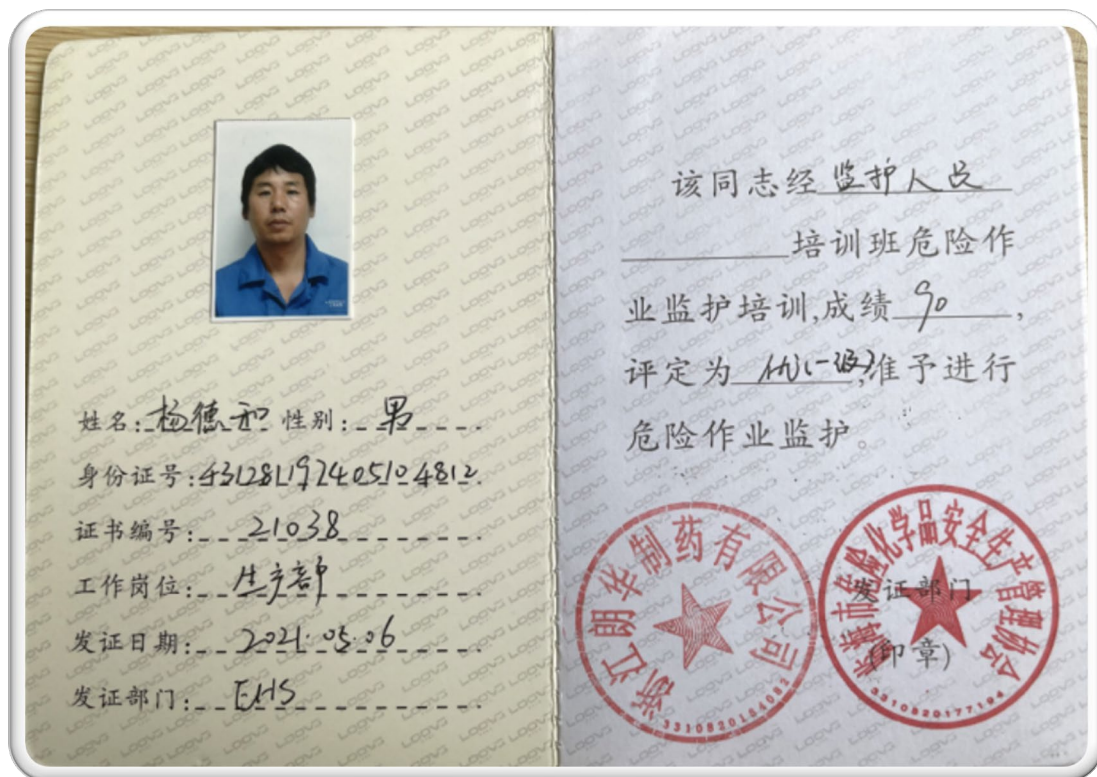 姓名:杨德和 性别:男
身份证号:431281197405104812
证书编号:21038
工作岗位:生产部
发证日期:2021.05.06
发证部门:EHS
该同志经监护人员
培训班危险作
业监护培训,成绩90,
评定为优(一级),准予进行
危险作业监护。
浙江朗华制药有限公司
3310820184082
临海市危险化学品安全生产管理协会
发证部门
(印章)
3310820177194
LOGVA